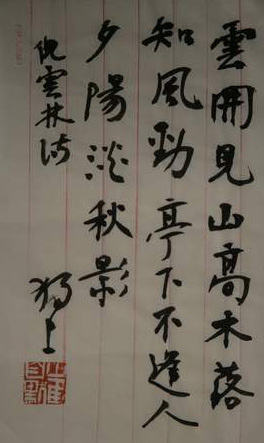 雲開見山高木落
知風勁亭下不逢人
夕陽淡秋影
倪雲林诗